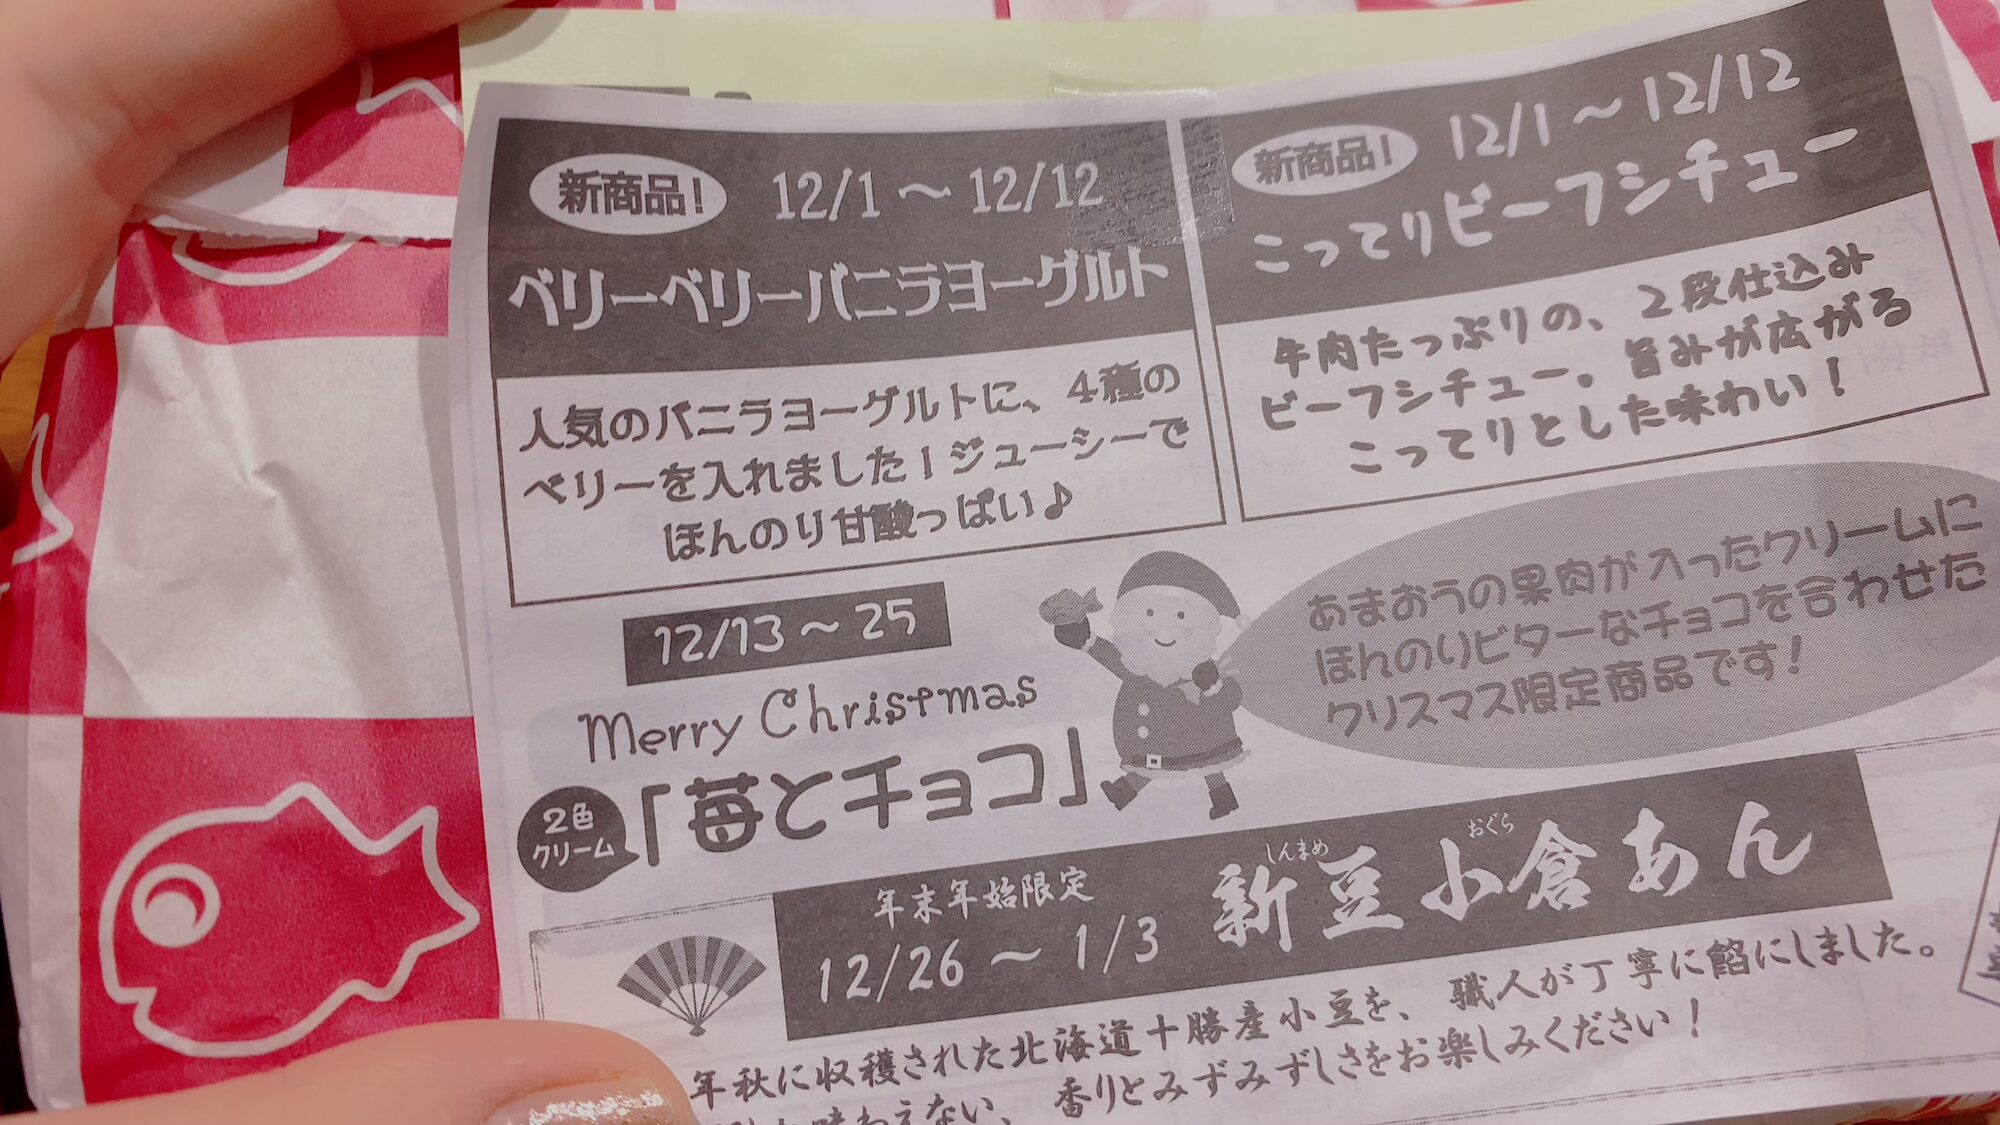 新商品! 12/1～12/12
ベリーベリーバニラヨーグルト
人気のバニラヨーグルトに、4種の
ベリーを入れました！ジューシーで
ほんのり甘酸っぱい♪
新商品! 12/1～12/12
こってりビーフシチュー
牛肉たっぷりの、2段仕込み
ビーフシチュー。旨みが広がる
こってりとした味わい！
12/13～25
Merry Christmas
2色
クリーム
「苺とチョコ」
あまおうの果肉が入ったクリームに
ほんのりビターなチョコを合わせた
クリスマス限定商品です！
年末年始限定
12/26～1/3
しんまめ おぐら
新豆小倉あん
年秋に収穫された北海道十勝産小豆を、職人が丁寧に餡にしました。
味わえない、香りとみずみずしさをお楽しみください！